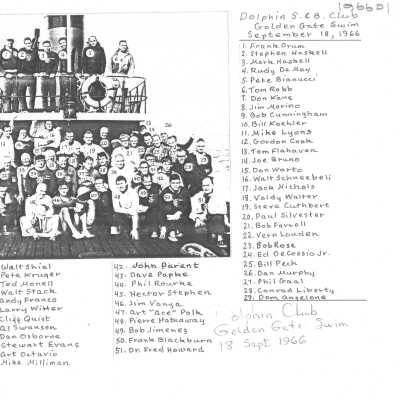 1966D1
Dolphin S. & B. Club
Golden Gate Swim
September 18, 1966
1. Frank Drum
2. Stephen Haskell
3. Mark Haskell
4. Rudy De May
5. Pete Bianucci
6. Tom Robb
7. Don Kane
8. Jim Morino
9. Bob Cunningham
10. Bill Koehler
11. Mike Lyons
12. Gordon Cook
13. Tom Flahaven
14. Joe Bruno
15. Don Warto
16. Walt Schneebeli
17. Jack Nichols
18. Valdy Walter
19. Steve Cuthbert
20. Paul Silvester
21. Bob Farrell
22. Vern Louden
23. Bob Rose
24. Ed DeCossio Jr.
25. Bill Pech
26. Dan Murphy
27. Phil Gaal
28. Conrad Liberty
29. Dom Angelone
Walt Shiel
Pete Kruger
Ted Monell
Walt Stack
Andy Franco
Larry Witter
Cliff Quist
Al Swanson
Dan Osborne
Stewart Evans
Art Octavio
Mike Milliman
42. John Parent
43. Dave Papke
44. Phil Rourke
45. Hector Stephen
46. Jim Vanya
47. Art "Ace" Polk
48. Pierre Hathaway
49. Bob Jimenez
50. Frank Blackburn
51. Dn Fred Howard
Dolphin Club
Golden Gate Swim
18 Sept 1966